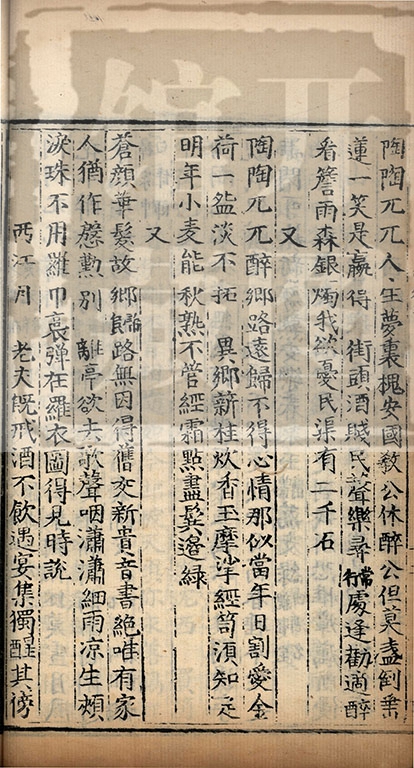 陶陶兀兀人生夢裏槐安國敎公休醉公但莫盞倒垂
蓮一笑是贏得　街頭酒賤民聲樂尋常行處逢勸適醉
看簷雨森銀燭我欲憂民渠有二千石
又
陶陶兀兀醉鄉路遠歸不得心情那似當年日割愛金
荷一盌淡不拓　異鄉薪桂炊香玉摩挲經笥須知足
明年小麦能秋熟不管經霜點盡鬂邉緑
又
蒼顔華髮故鄉歸路無因得舊交新貴音書絶唯有家
人猶作慇懃别　離亭欲去歌聲咽瀟瀟細雨凉生頰
淚珠不用羅巾裛弹在羅衣圖得見時說
西江月　老夫既戒酒不飲遇宴集獨醒其傍